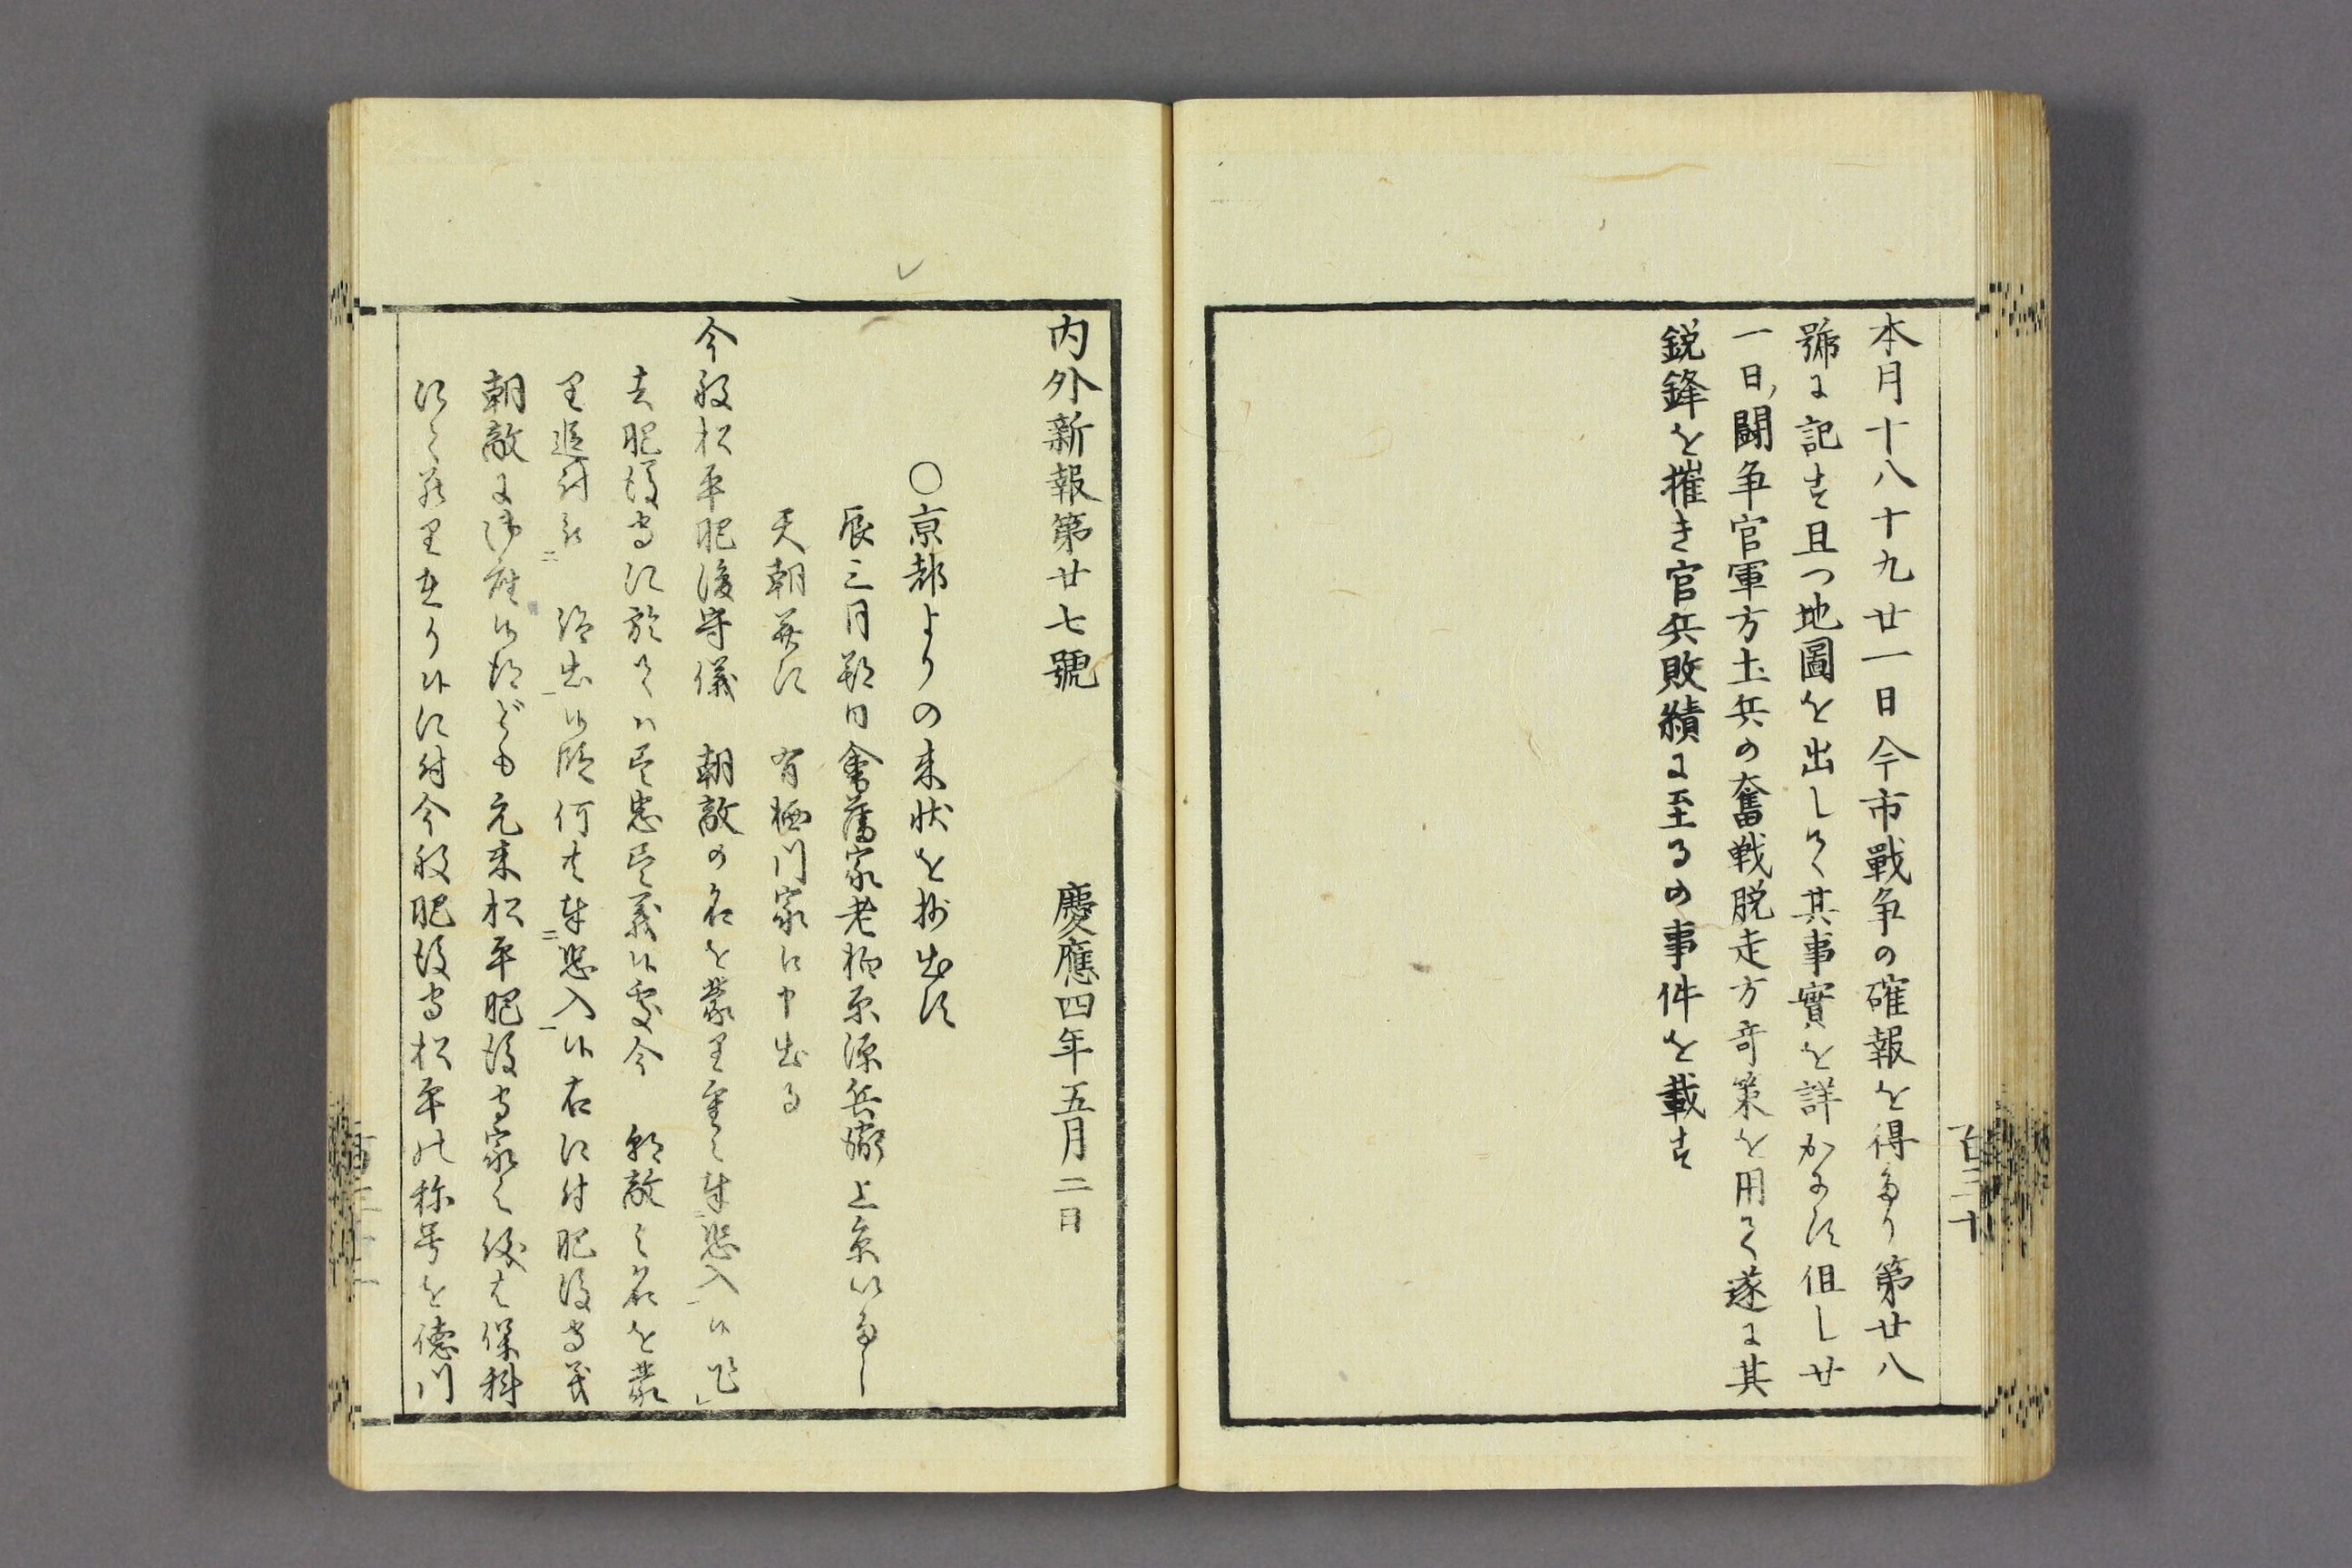 本月十八十九廿一日今市戰争の確報を得たり第廿八
號に記す且つ地圖を出して其事實を詳かにす但し廿
一日闘争官軍方土兵の奮戦脱走方奇策を用て遂に其
鋭鋒を摧き官兵敗績に至るの事件を載す
百三十
内外新報第廿七號　慶應四年五月二日
○京都よりの来状を抄出す
辰三月朔日會藩家老栖原源兵衛上京いたし
天朝並に　有栖川家に申出る
今般松平肥後守儀　朝敵の名を蒙り重々奉恐入候
去肥後守に於ては尽忠尽義候處今　朝敵之名を蒙
り追討被　仰出候段何共奉恐入候右に付肥後守義
朝敵に御座候得ども元来松平肥後守家之後は保科
に而在り候に付今般肥後守松平の称号を徳川